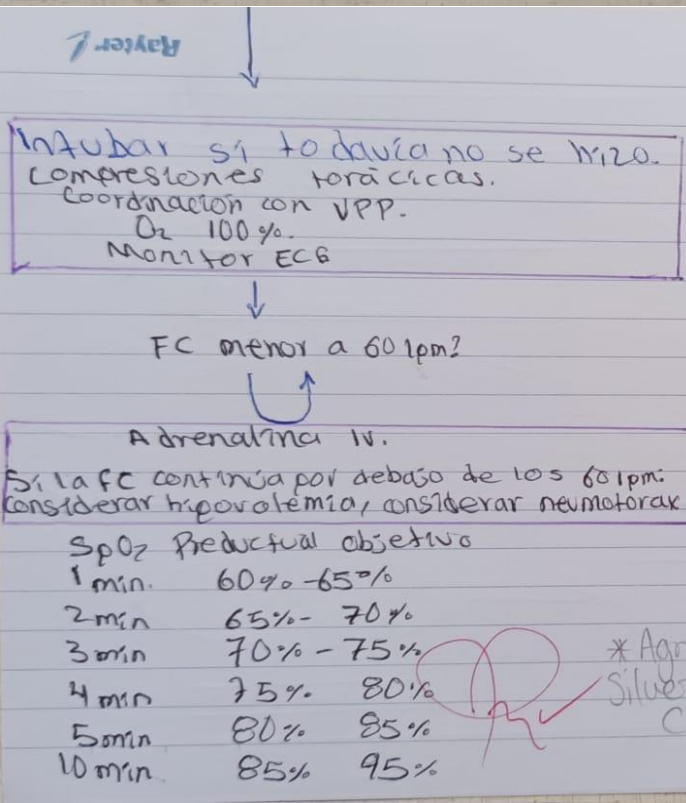 Rayter
Intubar si todavía no se hizo.
compresiones torácicas.
Coordinación con VPP.
O2 100%.
Monitor ECG
FC menor a 60 lpm?
Adrenalina IV.
Si la fc continúa por debajo de los 60 lpm:
considerar hipovolemia, considerar neumotorax
SpO2 Preductual objetivo
1 min. 60% - 65%
2 min 65% - 70%
3 min 70% - 75%
4 min 75% 80%
5 min 80% 85%
10 min 85% 95%
* Agr
Silves
C